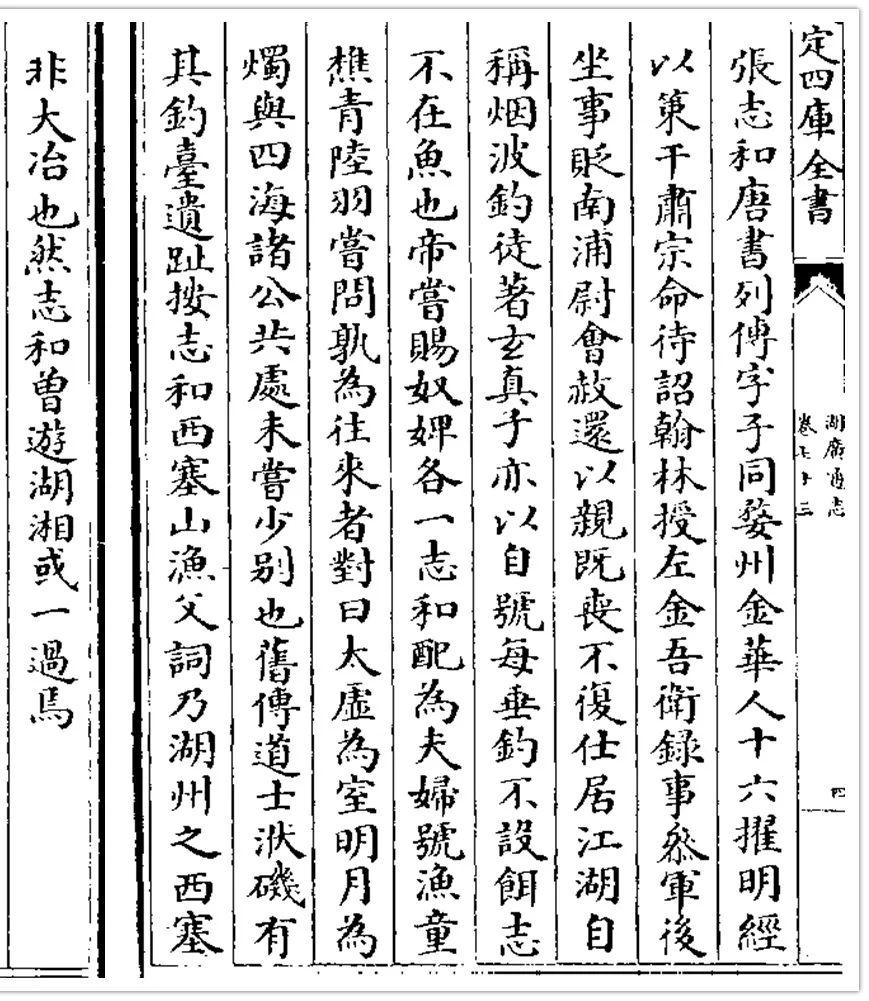 定四庫全書
湖廣通志
卷七十三
四
張志和唐書列傳字子同婺州金華人十六擢明經
以策干肅宗命待詔翰林授左金吾衛錄事叅軍後
坐事貶南浦尉會赦還以親既喪不復仕居江湖自
稱烟波釣徒著玄真子亦以自號每垂釣不設餌志
不在魚也帝嘗賜奴婢各一志和配為夫婦號漁童
樵青陸羽嘗問孰為往來者對曰太虛為室明月為
燭與四海諸公共處未嘗少别也舊傳道士洑磯有
其釣臺遺趾按志和西塞山漁父詞乃湖州之西塞
非大冶也然志和曾遊湖湘或一過焉